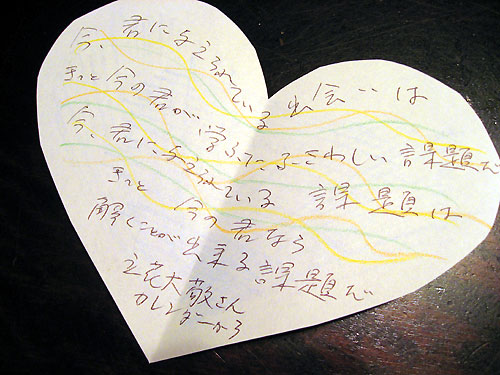 今、君に与えられている出会いは
きっと今の君が学ぶにふさわしい課題で
今、君に与えられている課題は
きっと今の君なら
解くことが出来る課題だ
立花大敬さん
カレンダーから